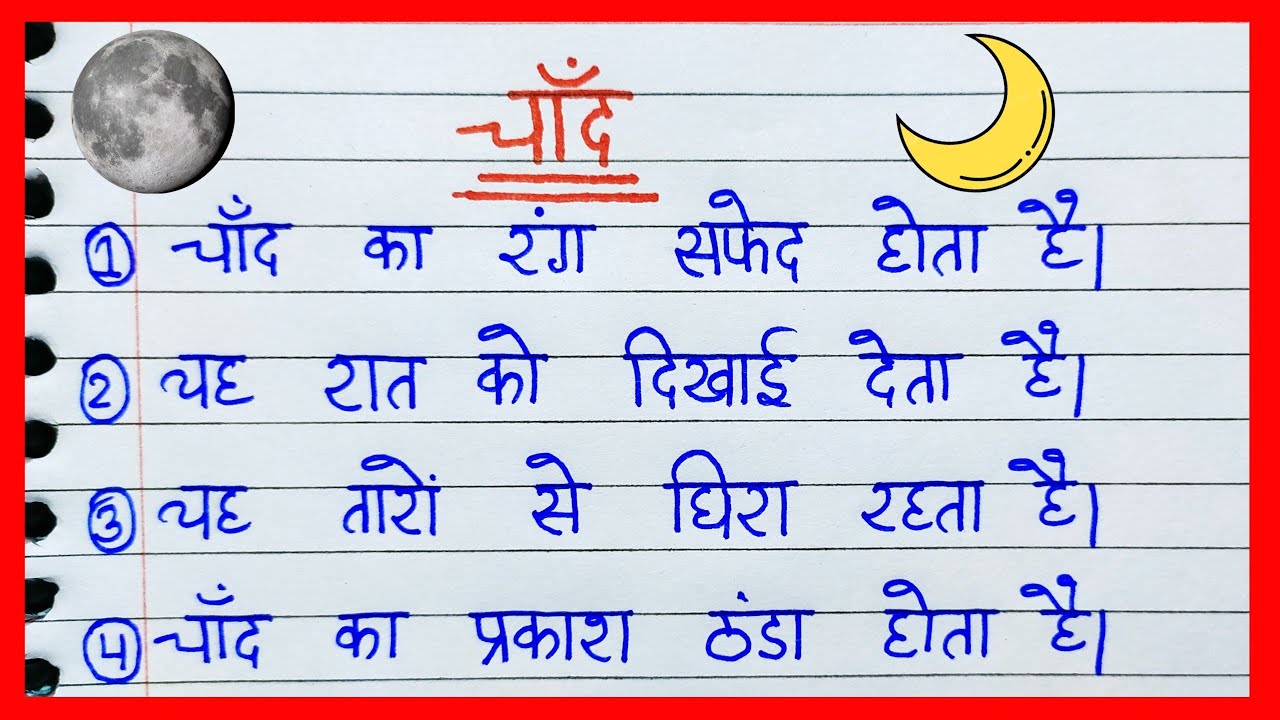 चाँद
① चाँद का रंग सफेद होता है।
② यह रात को दिखाई देता है।
③ यह तारों से घिरा रहता है।
④ चाँद का प्रकाश ठंडा होता है।